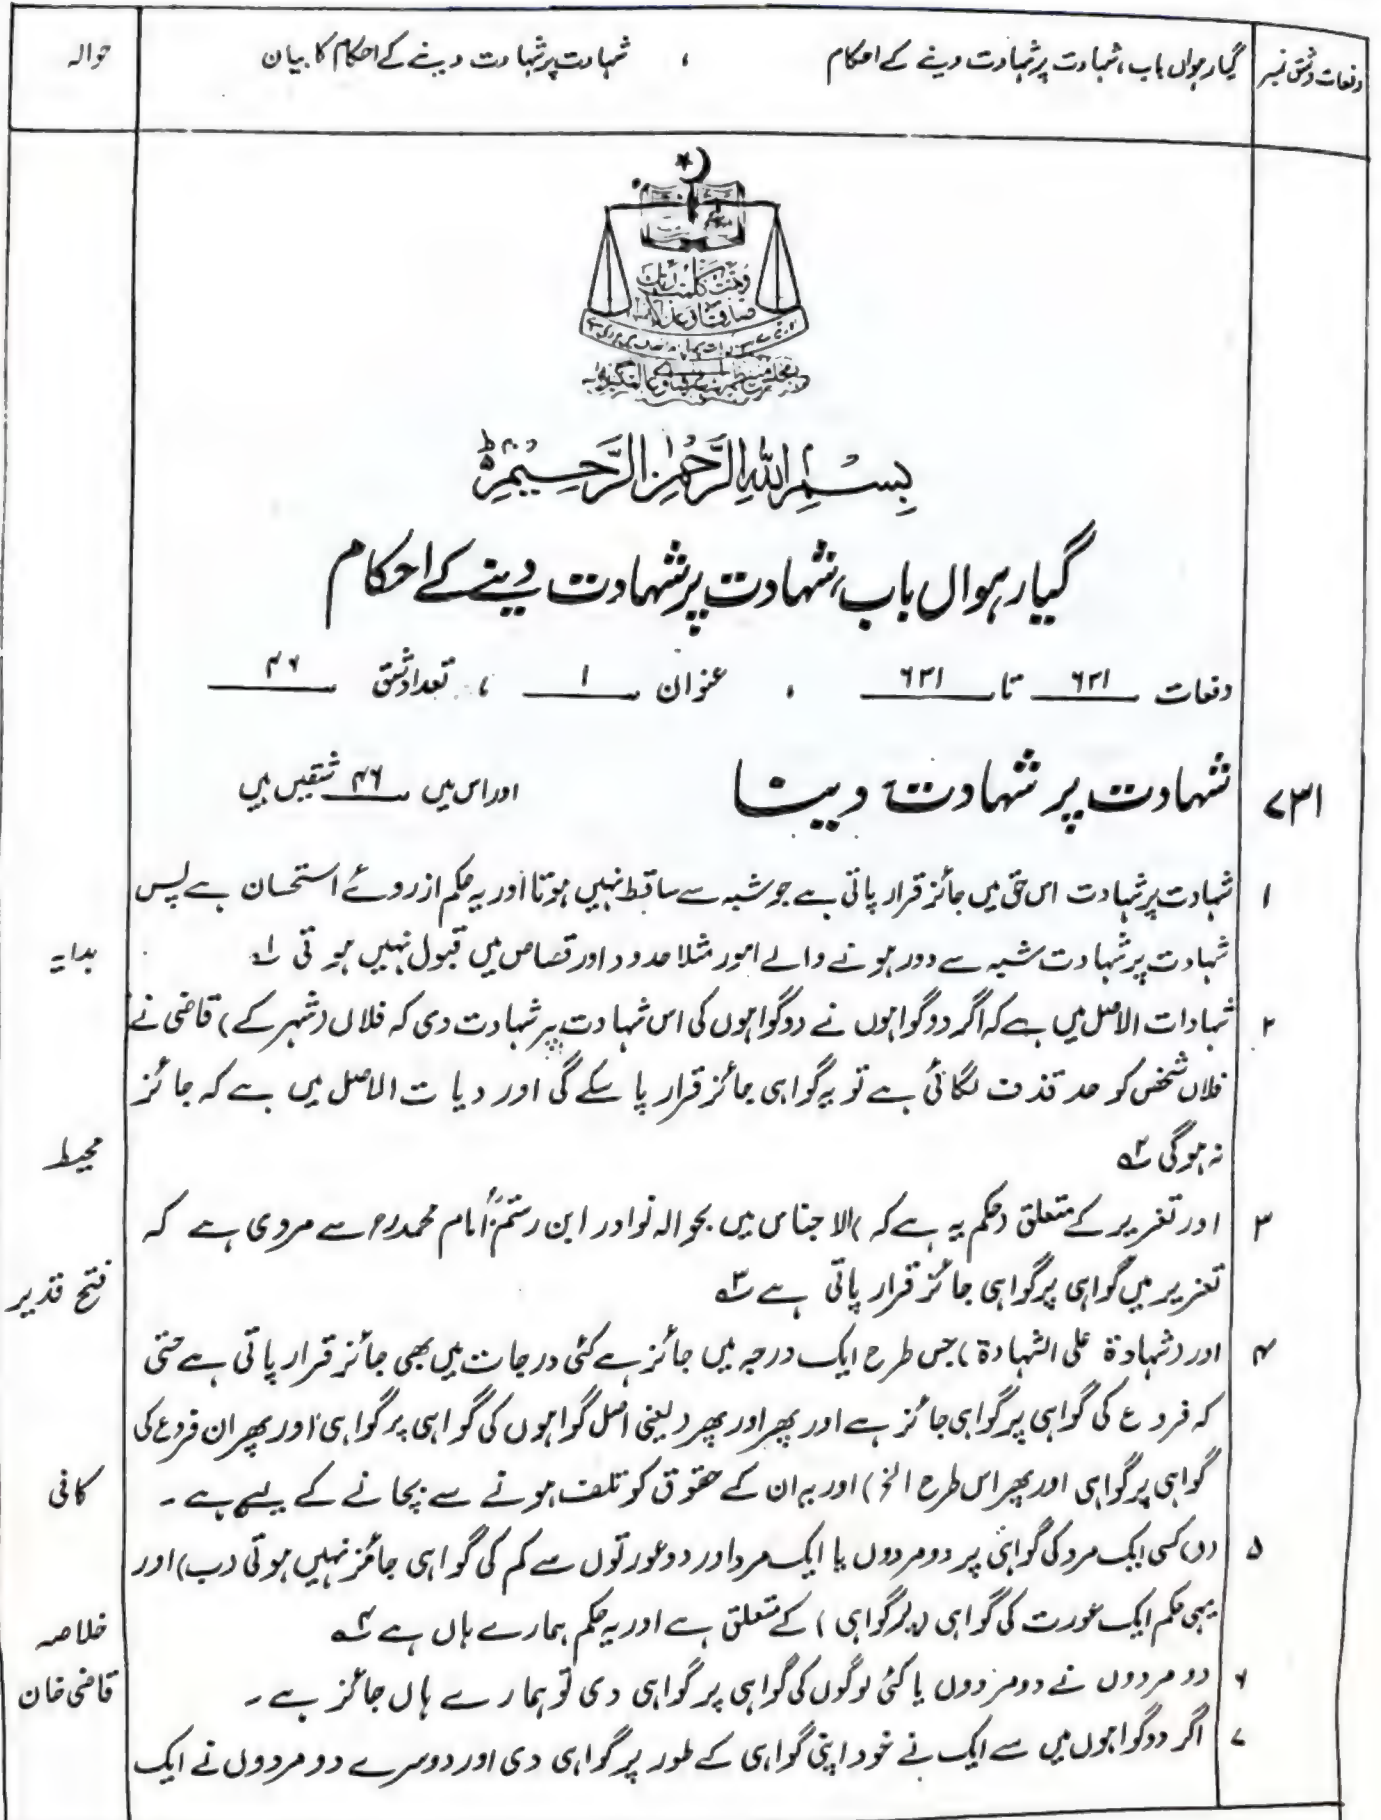 دفعات و شق نمبر
گیارہواں باب، شہادت پر شہادت دینے کے احکام ، شہادت پر شہادت دینے کے احکام کا بیان
حوالہ
وَتَمَّتْ كَلِمَتُ رَبِّكَ
صِدْقًا وَّعَدْلًا
بِسْمِ اللهِ الرَّحْمٰنِ الرَّحِيْمِ ط
گیارہواں باب، شہادت پر شہادت دینے کے احکام
دفعات ۶۳۱ تا ۶۳۱ ، عنوان ۱ ، تعداد شق ۴۶
۷۳۱ شہادت پر شہادت دینا اور اس میں ۴۶ شقیں ہیں
۱ شہادت پر شہادت اس حق میں جائز قرار پاتی ہے جو شبہ سے ساقط نہیں ہوتا اور یہ حکم از روئے استحسان ہے پس
شہادت پر شہادت شبہ سے دور ہونے والے امور مثلا حدود اور قصاص میں قبول نہیں ہوتی ۱؎ ہدایہ
۲ شہادات الاصل میں ہے کہ اگر دو گواہوں نے دو گواہوں کی اس شہادت پر شہادت دی کہ فلاں (شہر کے) قاضی نے
فلاں شخص کو حد قذف لگائی ہے تو یہ گواہی جائز قرار پا سکے گی اور دیات الاصل میں ہے کہ جائز
نہ ہوگی ۲؎ محیط
۳ اور تغریر کے متعلق (حکم یہ ہے کہ) الاجناس میں بحوالہ نوادر ابن رستم، امام محمدرہ سے مروی ہے کہ
تعزیر میں گواہی پر گواہی جائز قرار پاتی ہے ۳؎ فتح قدیر
۴ اور (شہادۃ علی الشہادۃ) جس طرح ایک درجہ میں جائز ہے کئی درجات میں بھی جائز قرار پاتی ہے حتی
کہ فروع کی گواہی پر گواہی جائز ہے اور پھر اور پھر (یعنی اصل گواہوں کی گواہی پر گواہی اور پھر ان فروع کی
گواہی پر گواہی اور پھر اس طرح الخ) اور یہ ان کے حقوق کو تلف ہونے سے بچانے کے لیے ہے ۔ کافی
۵ (ا) کسی ایک مرد کی گواہی پر دو مردوں یا ایک مرد اور دو عورتوں سے کم کی گواہی جائز نہیں ہوتی (ب) اور
یہی حکم ایک عورت کی گواہی (پر گواہی) کے متعلق ہے اور یہ حکم ہمارے ہاں ہے ۴؎ خلاصہ
۶ دو مردوں نے دو مردوں یا کئی لوگوں کی گواہی پر گواہی دی تو ہمارے ہاں جائز ہے ۔ قاضی خان
۷ اگر دو گواہوں میں سے ایک نے خود اپنی گواہی کے طور پر گواہی دی اور دوسرے دو مردوں نے ایک